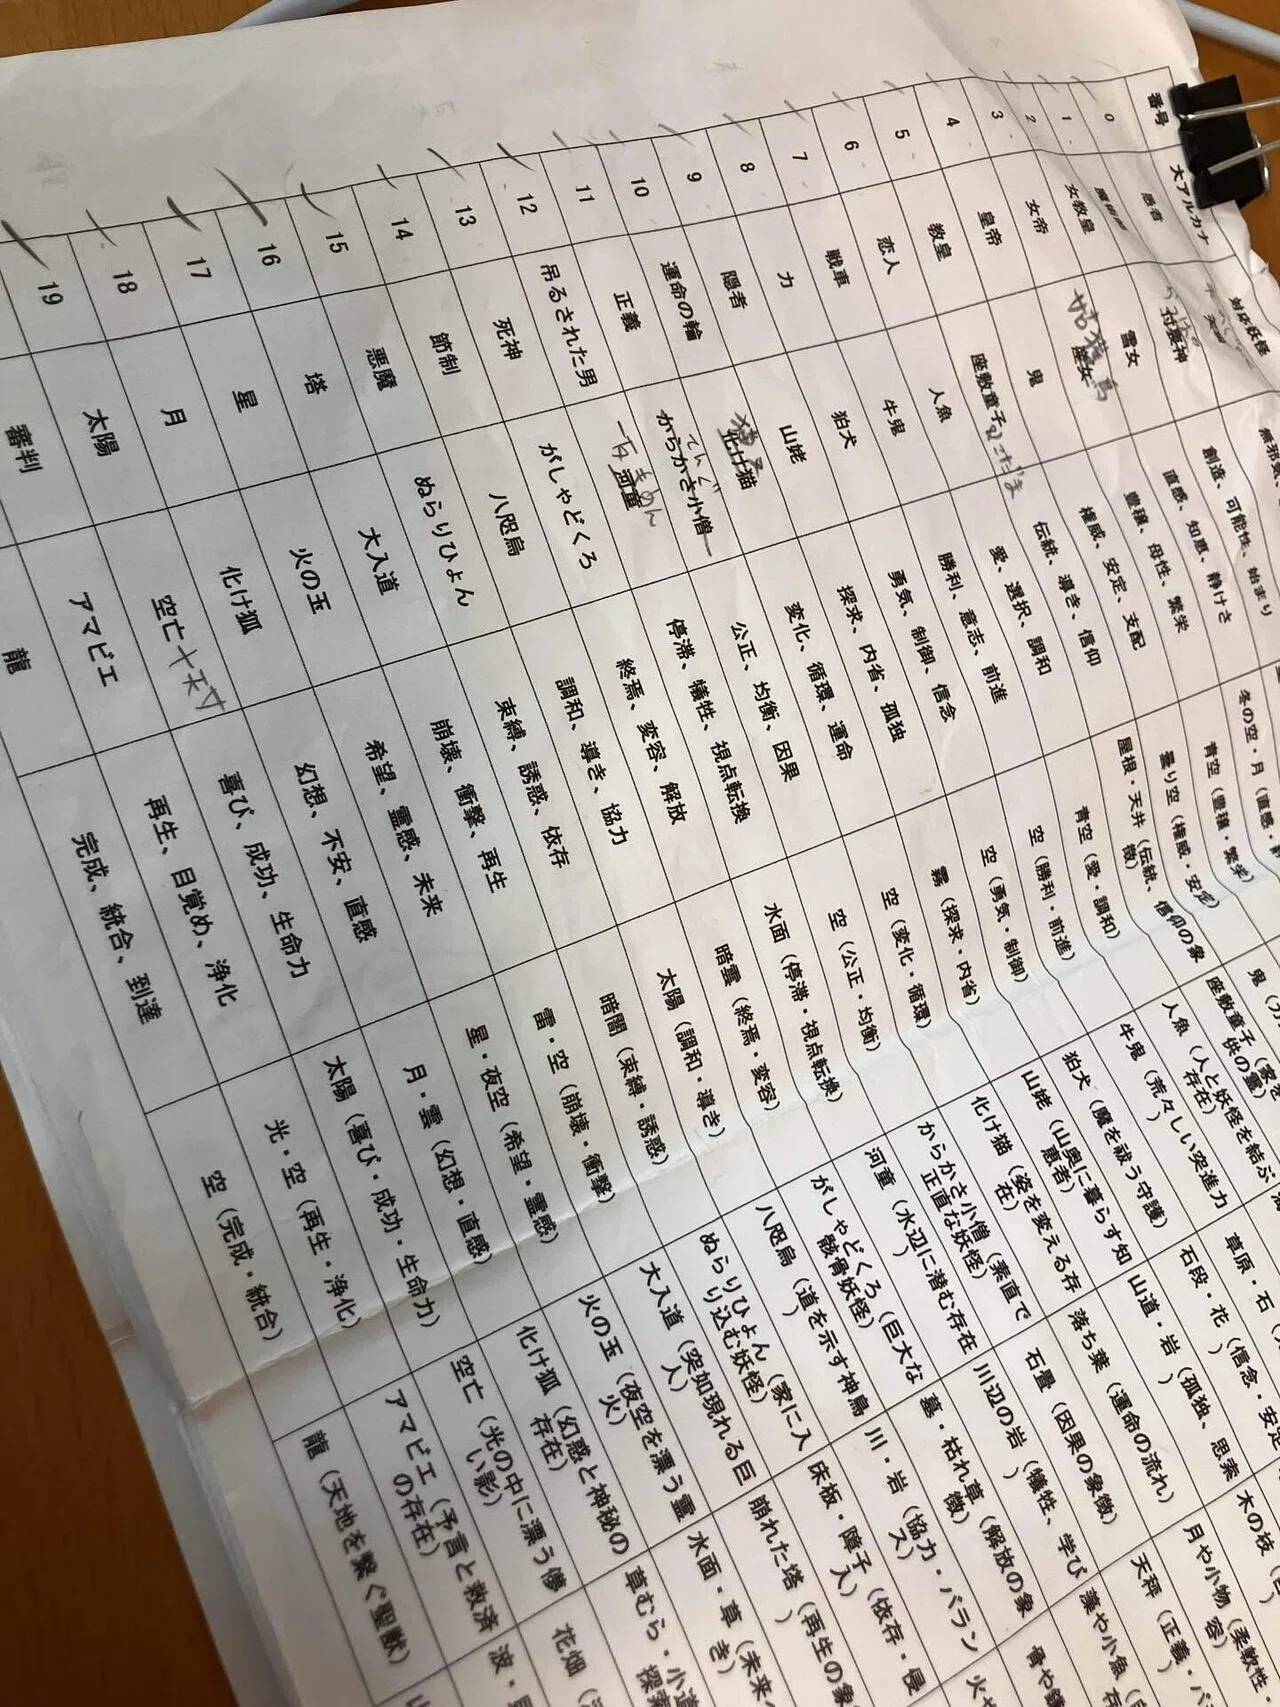 番号 大アルカナ 対応妖怪
0 愚者
1 魔術師 付喪神 創造、可能性、始まり
2 女教皇 雪女 直感、知恵、静けさ 冬の空・月（直感・
3 女帝 姑獲鳥 豊穣、母性、繁栄 青空（豊穣・繁栄）
4 皇帝 鬼 権威、安定、支配 曇り空（権威・安定） 鬼（力
5 教皇 座敷童子 こだま 伝統、導き、信仰 屋根・天井（伝統、信仰の象徴） 座敷童子（家を
6 恋人 人魚 愛、選択、調和 青空（愛・調和） 人魚（人と妖怪を結ぶ存在）
7 戦車 牛鬼 勝利、意志、前進 空（勝利・前進） 牛鬼（荒々しい突進力） 草原・石（
8 力 狛犬 勇気、制御、信念 空（勇気・制御） 狛犬（魔を祓う守護） 石段・花（信念・安定）
9 隠者 山姥 探求、内省、孤独 霧（探求・内省） 山姥（山奥に暮らす知恵者） 山道・岩（孤独、思索） 木の枝（
10 運命の輪 化け猫 変化、循環、運命 空（変化・循環） 化け猫（姿を変える存在） 落ち葉（運命の流れ） 月や小物（柔軟性・
11 正義 からかさ小僧 てんぐ 公正、均衡、因果 空（公正・均衡） からかさ小僧（素直で正直な妖怪） 石畳（因果の象徴） 天秤（正義・バ
12 吊るされた男 河童 停滞、犠牲、視点転換 水面（停滞・視点転換） 河童（水辺に潜む存在） 川辺の岩（犠牲、学び） 藻や小魚（
13 死神 がしゃどくろ 終焉、変容、解放 暗雲（終焉・変容） がしゃどくろ（巨大な骸骨妖怪） 墓・枯れ草（解放の象徴）
14 節制 八咫烏 調和、導き、協力 太陽（調和・導き） 八咫烏（道を示す神鳥） 川・岩（協力・バランス）
15 悪魔 ぬらりひょん 束縛、誘惑、依存 暗闇（束縛・誘惑） ぬらりひょん（家に入り込む妖怪） 床板・障子（依存・侵入）
16 塔 大入道 崩壊、衝撃、再生 雷・空（崩壊・衝撃） 大入道（突如現れる巨人） 崩れた塔（再生の象
17 星 火の玉 希望、霊感、未来 星・夜空（希望・霊感） 火の玉（夜空を漂う霊火） 水面・草（未来へ
18 月 化け狐 幻想、不安、直感 月・雲（幻想・直感） 化け狐（幻惑と神秘の存在） 草むら・小道
19 太陽 空亡 喜び、成功、生命力 太陽（喜び・成功・生命力） 空亡（光の中に漂う儚い影） 花畑
審判 アマビエ 再生、目覚め、浄化 光・空（再生・浄化） アマビエ（予言と救済の存在） 波・
龍 完成、統合、到達 空（完成・統合） 龍（天地を繋ぐ聖獣）